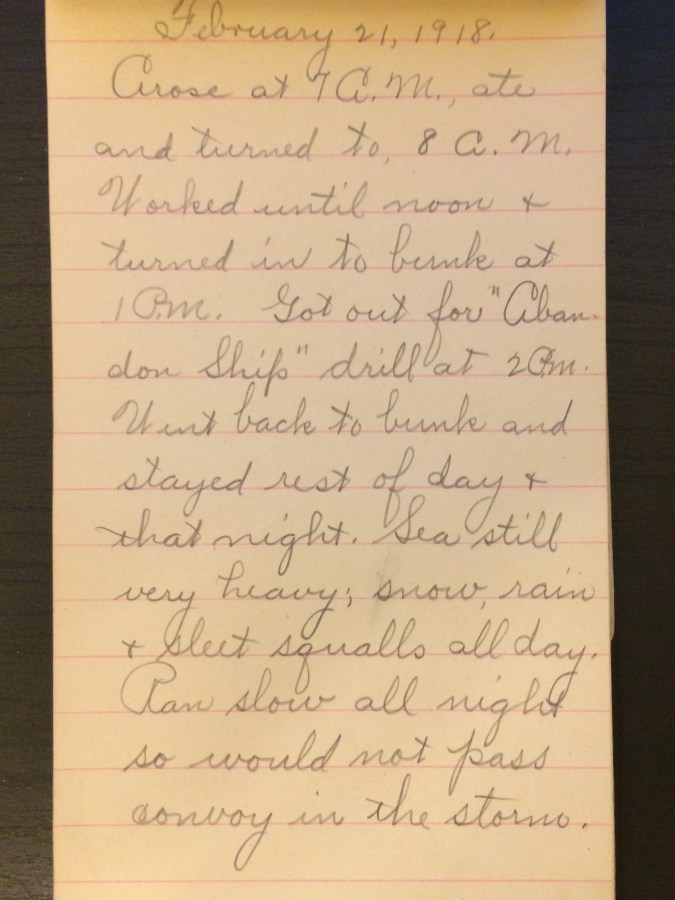 February 21, 1918.
Arose at 7 A.M., ate
and turned to, 8 A. M.
Worked until noon +
turned in to bunk at
1 P.M. Got out for "Aban-
don Ship" drill at 2 P.M.
Went back to bunk and
stayed rest of day +
that night. Sea still
very heavy; snow, rain
+ sleet squalls all day.
Ran slow all night
so would not pass
convoy in the storm.